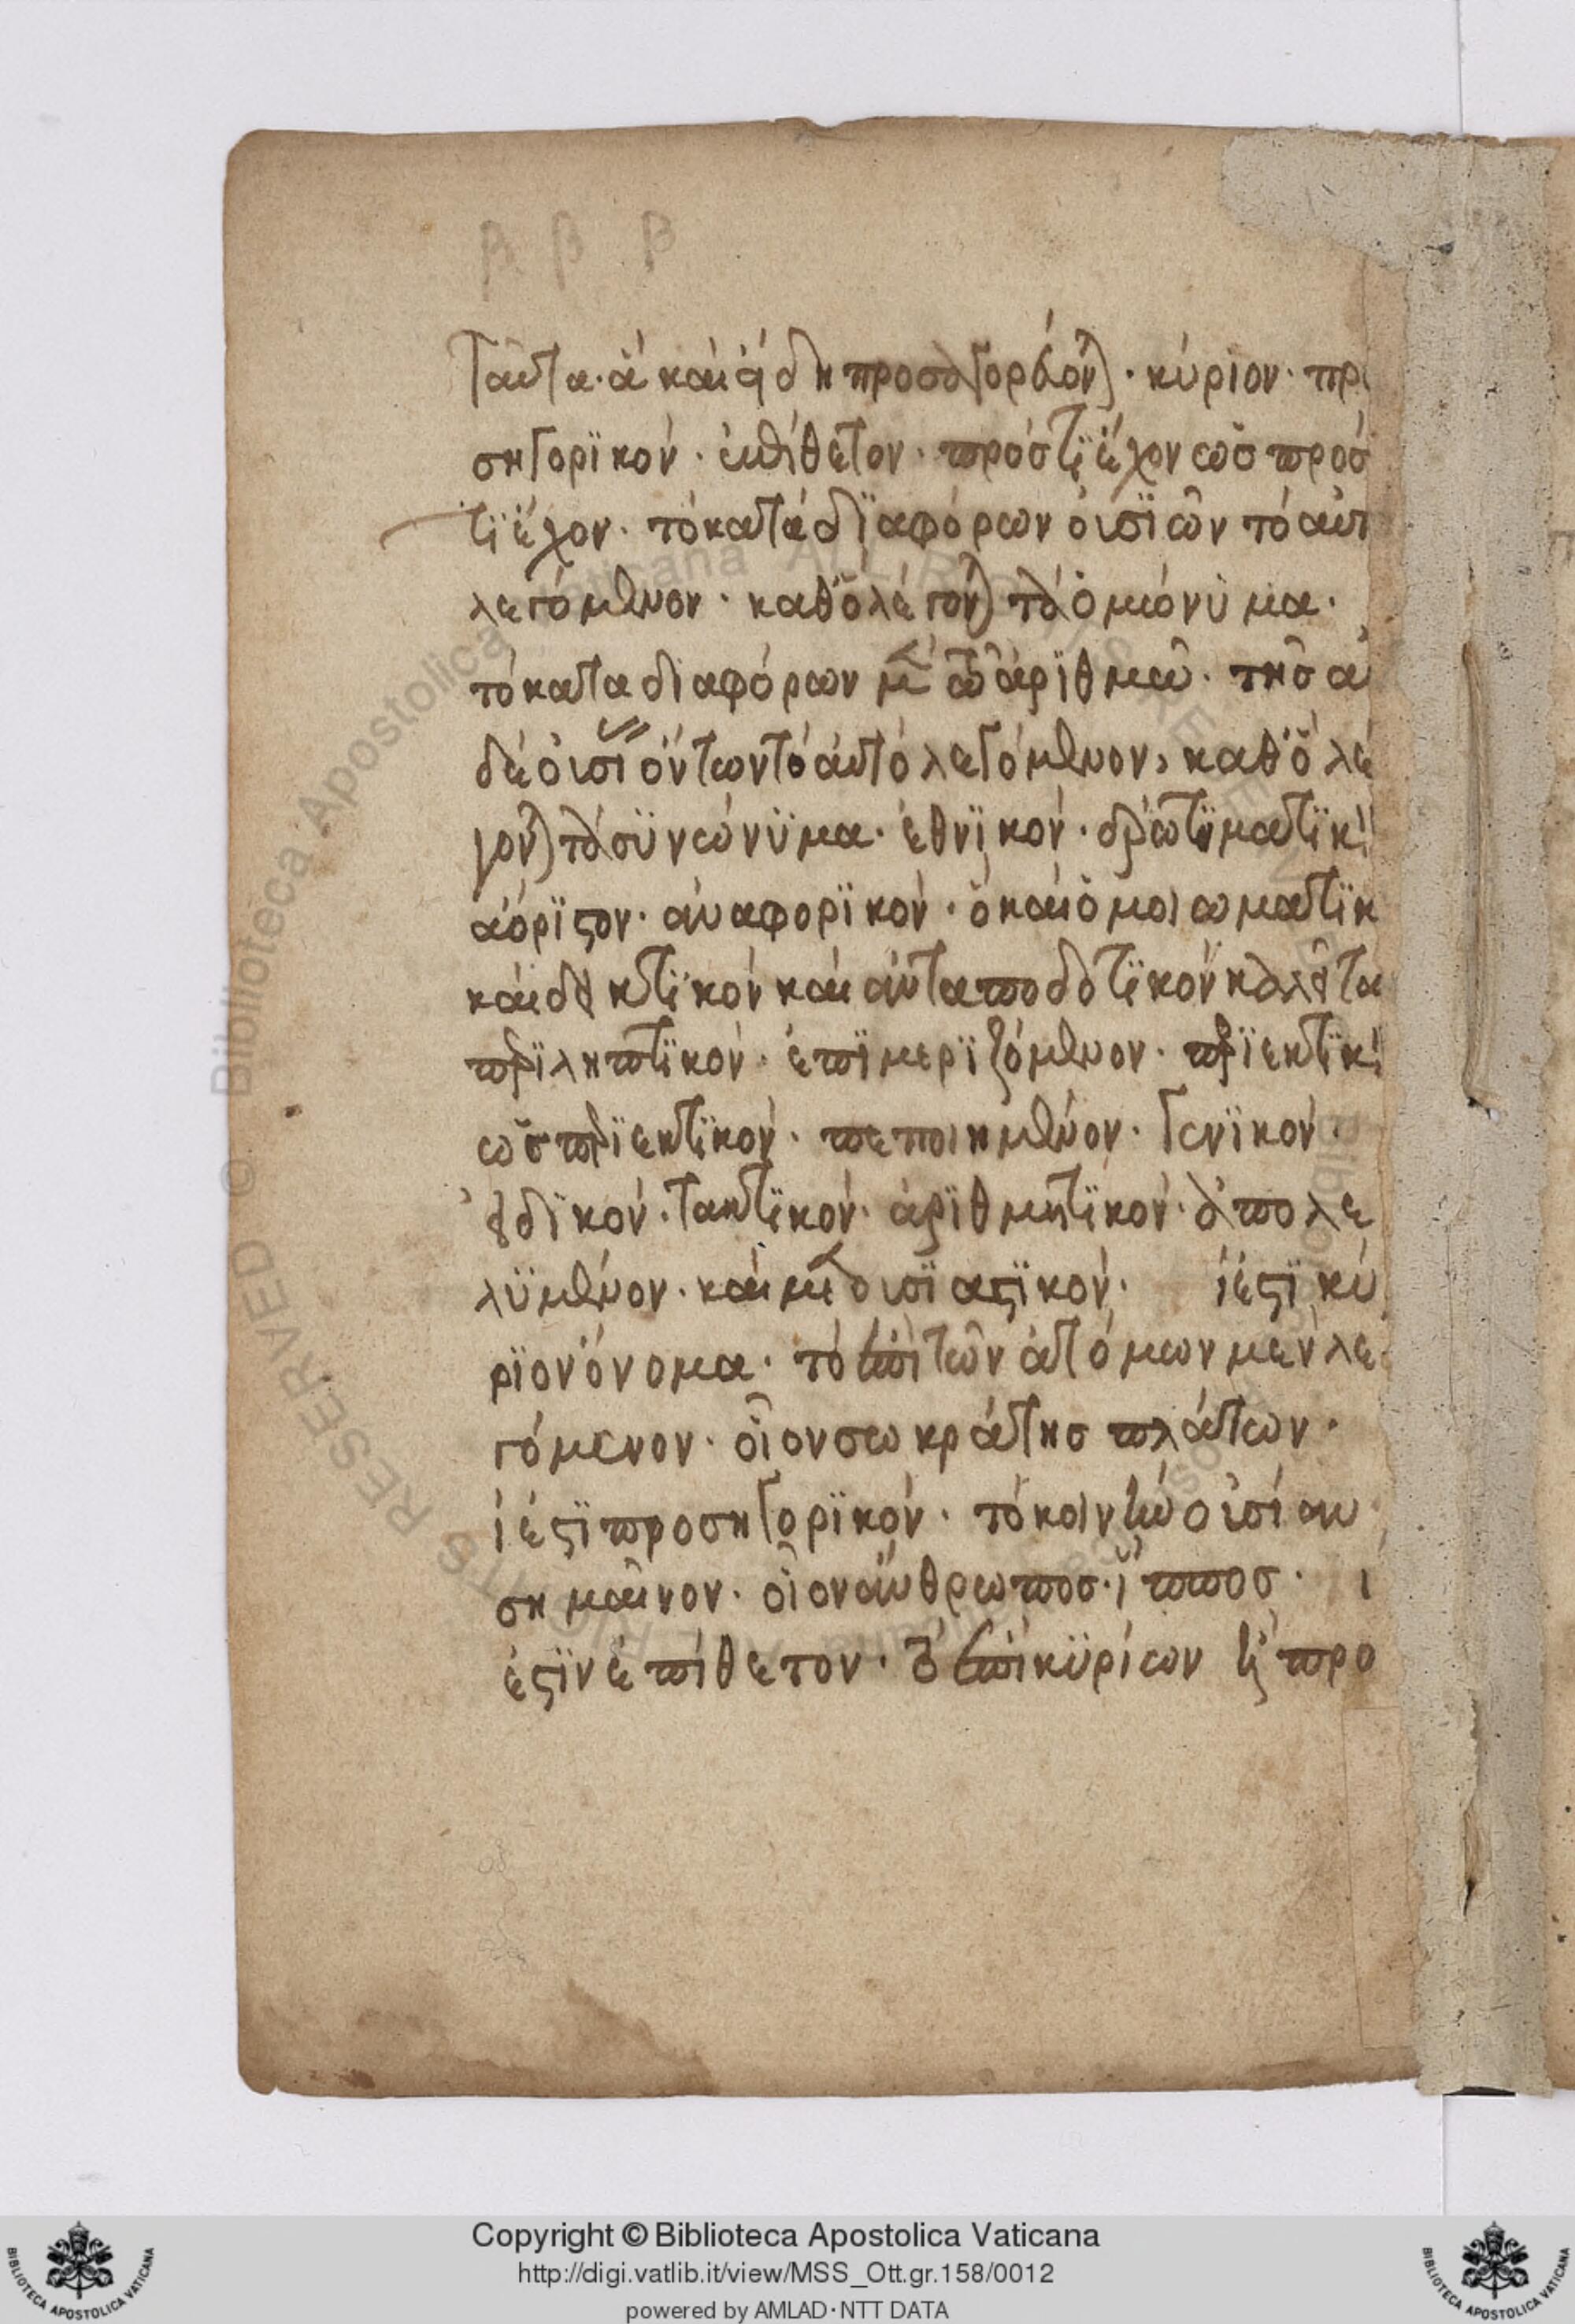 β β β
ταῦτα· ἃ καὶ εἴδη προσαγορεύονται· κύριον· προ
σηγορϊκόν· ἐπίθετον· πρόστϊ ἔχον ὡς πρόσ
τϊ ἔχον· τὸ κατὰ δϊαφόρων οἰσϊῶν τὸ αὐτ
λεγόμενον· καθ' ὃ λέγονται τὰ ὁμόνϋμα·
τὸ κατα διαφόρων μὲν τῶ ἀρϊθμῶ· τῆς αὐ
δὲ οἰσϊ ὄντων τὸ αὐτὸ λεγόμενον, καθ' ὃ λέ
γονται τὰ σϋνώνϋμα· ἐθνϊκόν· ἐρωτϊματϊκ
ἀόρϊστον· ἀναφορϊκόν· ὃ καὶ ὁμοιωματϊκ
καὶ δεικτϊκόν καὶ ἀνταποδοτϊκόν καλεῖται
περϊληπτϊκόν· ἐπϊμερϊζόμενον· περϊεκτϊκ
ὡς περϊεκτϊκόν· πεποιημένον· γενϊκόν·
εἰδϊκόν· τακτϊκόν· ἀρϊθμητϊκόν· ἀπολε
λϋμένον· καὶ μετοισϊαστϊκόν· ἱ ἐστϊ κύ
ρϊον ὄνομα· τὸ ἐπὶ τῶν ἀτόμων μεν λε
γόμενον· οἷον σωκράτης πλάτων·
ἱ ἐστϊ προσηγορϊκόν· τὸ κοινὴν οἰσίαν
σημαῖνον· οἷον ἄνθρωπος· ἵππος· ἱ
ἐστϊν ἐπίθετον· ὃ ἐπὶ κϋρίων ἢ προ
Copyright © Biblioteca Apostolica Vaticana
http://digi.vatlib.it/view/MSS_Ott.gr.158/0012
powered by AMLAD·NTT DATA
BIBLIOTECA APOSTOLICA VATICANA
BIBLIOTECA APOSTOLICA VATICANA